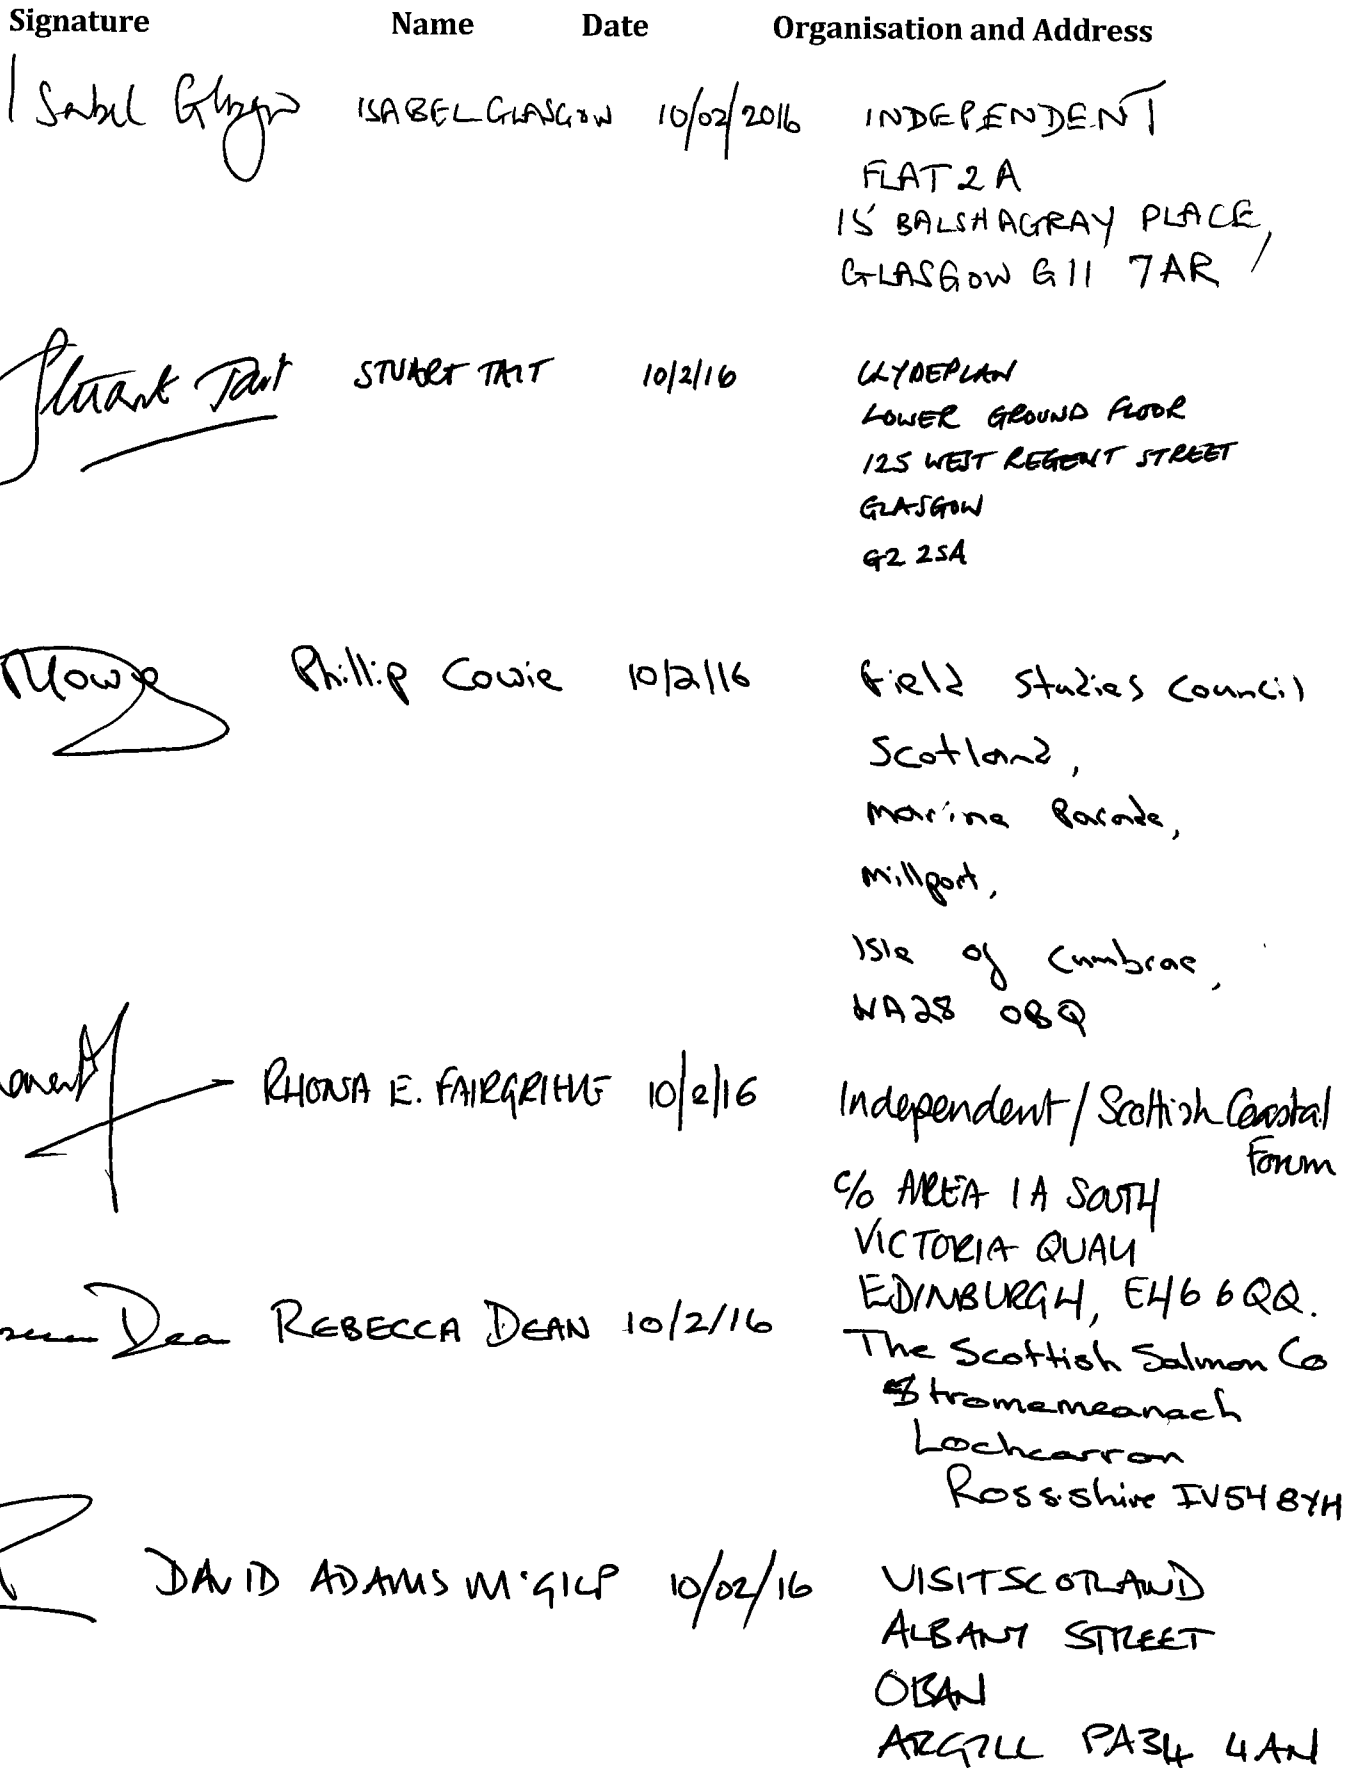 Signature Name Date Organisation and Address
Isabel Glasgow ISABEL GLASGOW 10/02/2016 INDEPENDENT
FLAT 2A
15 BALSHAGRAY PLACE,
GLASGOW G11 7AR
Stuart Tait STUART TAIT 10/2/16 CLYDEPLAN
LOWER GROUND FLOOR
125 WEST REGENT STREET
GLASGOW
G2 2SA
Phillip Cowie 10/2/16 Field Studies Council
Scotland,
Marine Parade,
Millport,
Isle of Cumbrae,
KA28 0BQ
RHONA E. FAIRGRIEVE 10/2/16 Independent / Scottish Coastal
Forum
c/o AREA 1A SOUTH
VICTORIA QUAY
EDINBURGH, EH6 6QQ.
Dean REBECCA DEAN 10/2/16 The Scottish Salmon Co
Stromemeanach
Lochcarron
Ross-shire IV54 8YH
DAVID ADAMS McGILP 10/02/16 VISITSCOTLAND
ALBANY STREET
OBAN
ARGYLL PA34 4AN